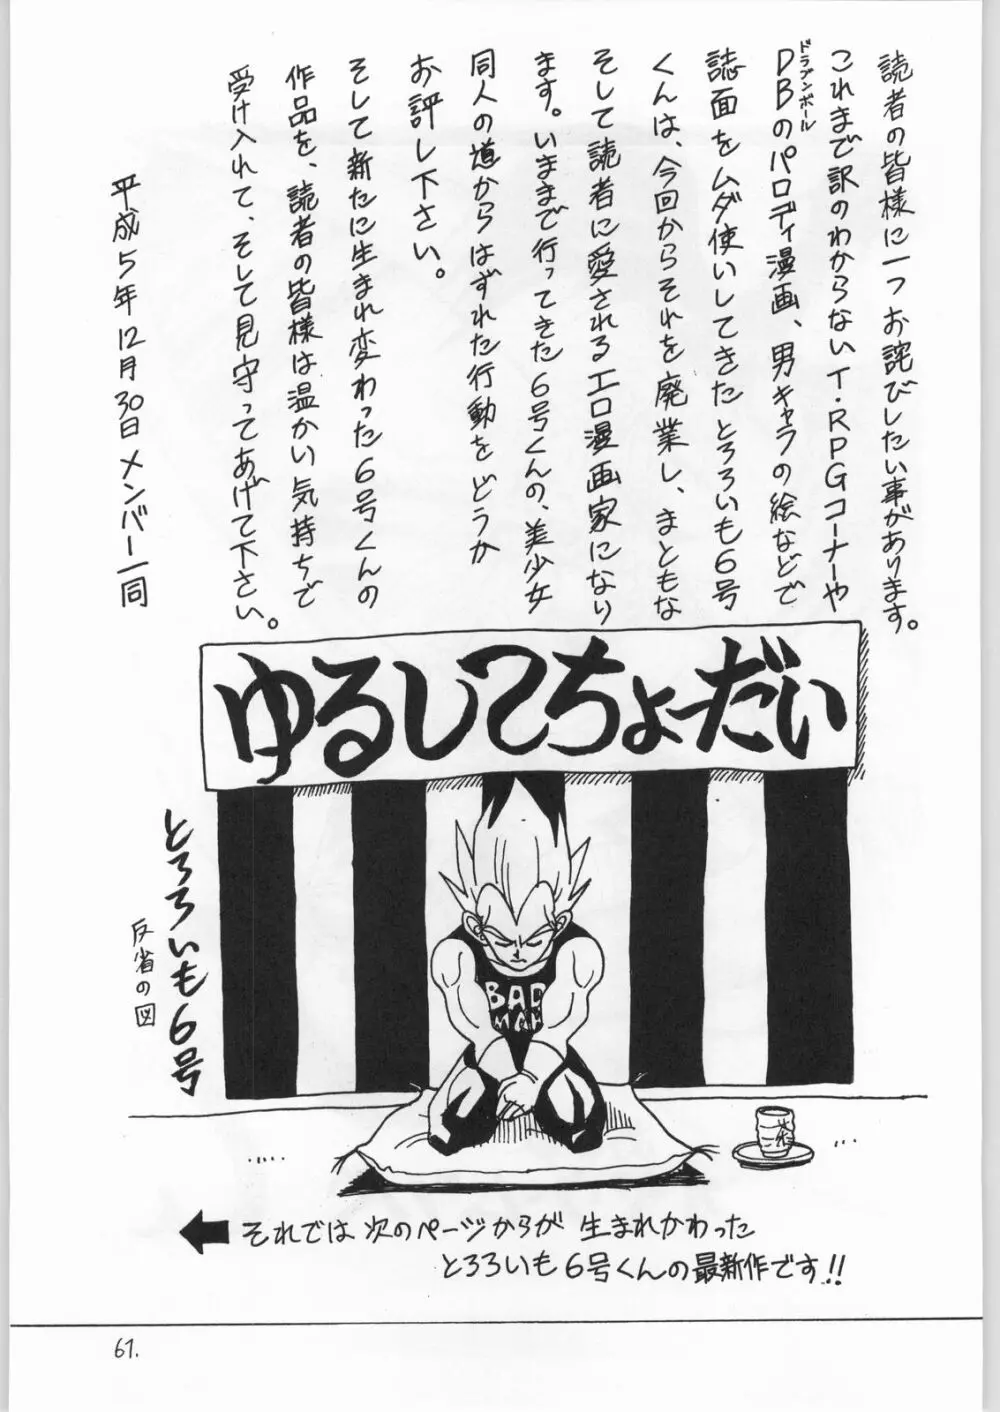 読者の皆様に一つお詫びしたい事があります。
これまで訳のわからないT・RPGコーナーや
DBのパロディ漫画、男キャラの絵などで
ドラゴンボール
誌面をムダ使いしてきたとろろいも6号
くんは、今回からそれを廃業し、まともな
そして読者に愛されるエロ漫画家になり
ます。いままで行ってきた6号くんの、美少女
同人の道からはずれた行動をどうか
お評し下さい。
そして新たに生まれ変わった6号くんの
作品を、読者の皆様は温かい気持ちで
受け入れて、そして見守ってあげて下さい。
平成5年12月30日メンバー一同
ゆるしてちょーだい
とろろいも6号
反省の図
BAD
MAN
茶
それでは次のページからが生まれかわった
とろろいも6号くんの最新作です!!
61.